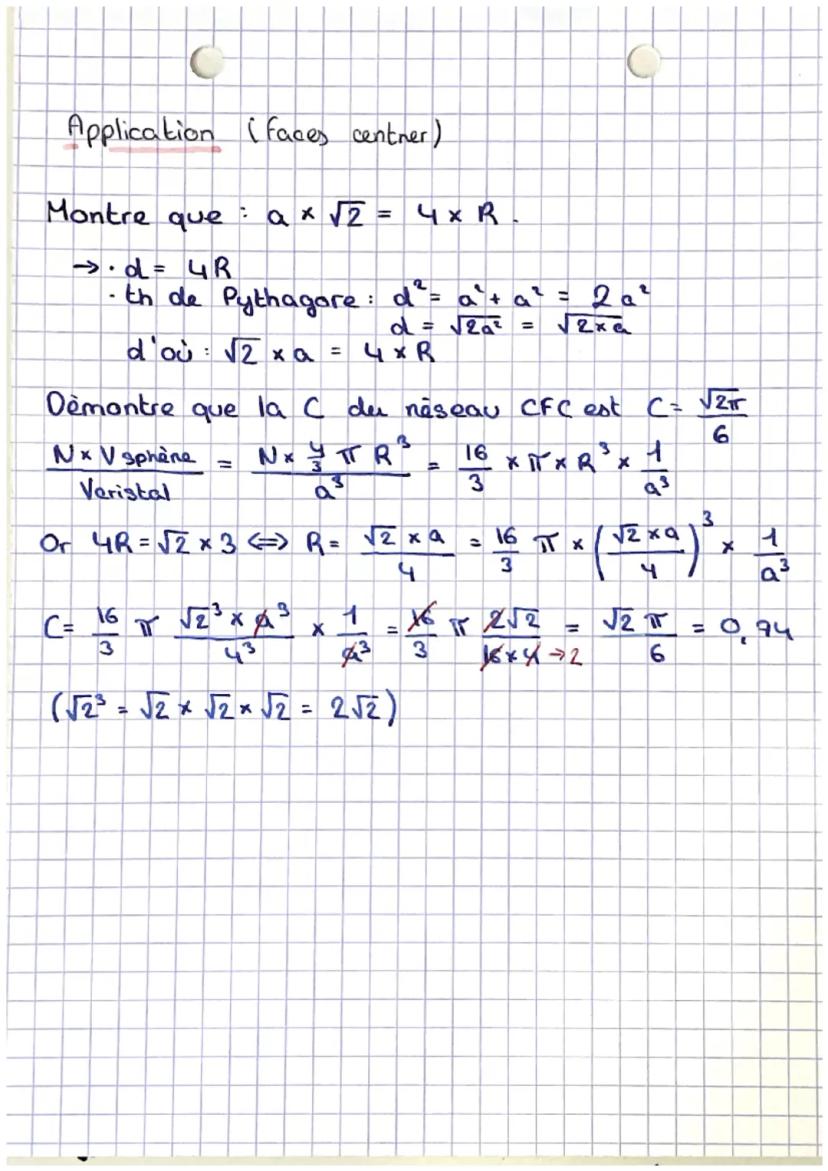 Application (faces centrer)
Montre que : a × √2 = 4 × R.
→ · d = 4R
· th de Pythagore : d² = a² + a² = 2a²
d = √2a² = √2×a
d'où : √2 × a = 4 × R
Démontre que la C du réseau CFC est C = √2π/6
N × V sphère / Vcristal = N × 4/3 π R³ / a³ = 16/3 × π × R³ × 1/a³
Or 4R = √2 × 3 ⟺ R = √2 × a / 4 = 16/3 π × (√2 × a / 4)³ × 1/a³
C = 16/3 π √2³ × a³ / 4³ × 1/a³ = 16/3 π 2√2 / 16×4 → 2 = √2 π / 6 = 0,94
(√2³ = √2 × √2 × √2 = 2√2)